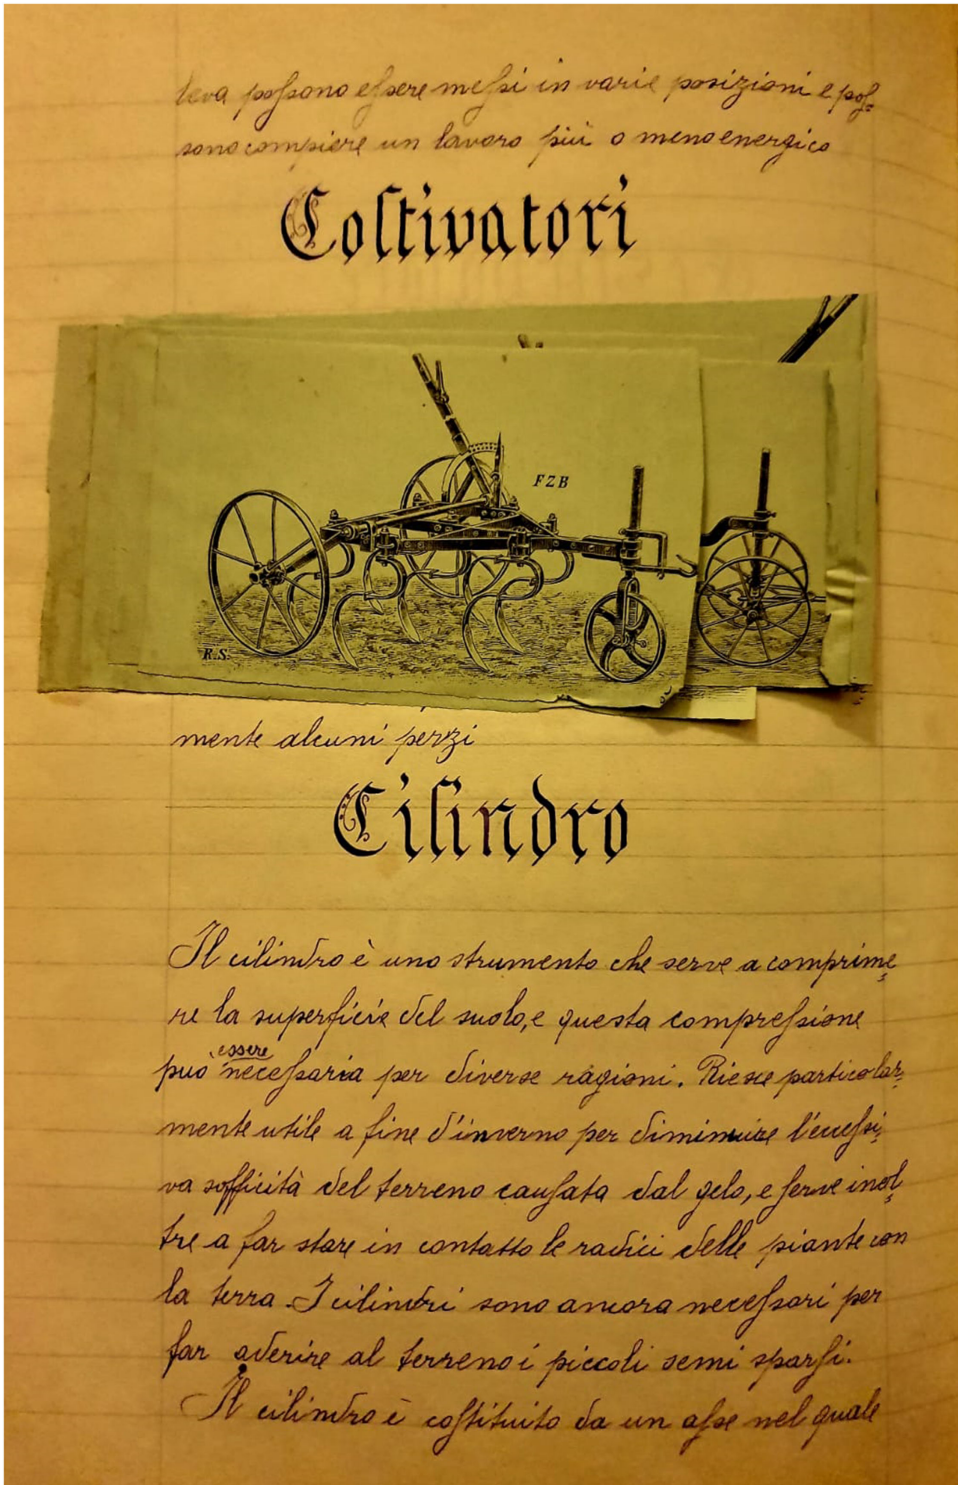 leva possono essere messi in varie posizioni e pos=
sono compiere un lavoro più o meno energico
Coltivatori
FZB
R.S.
mente alcuni pezzi
Cilindro
Il cilindro è uno strumento che serve a comprime=
re la superficie del suolo, e questa compressione
può essere necessaria per diverse ragioni. Riesce particolar=
mente utile a fine d'inverno per diminuire l'eccessi=
va sofficità del terreno causata dal gelo, e serve inol=
tre a far stare in contatto le radici delle piante con
la terra. I cilindri sono ancora necessari per
far aderire al terreno i piccoli semi sparsi.
Il cilindro è costituito da un asse nel quale